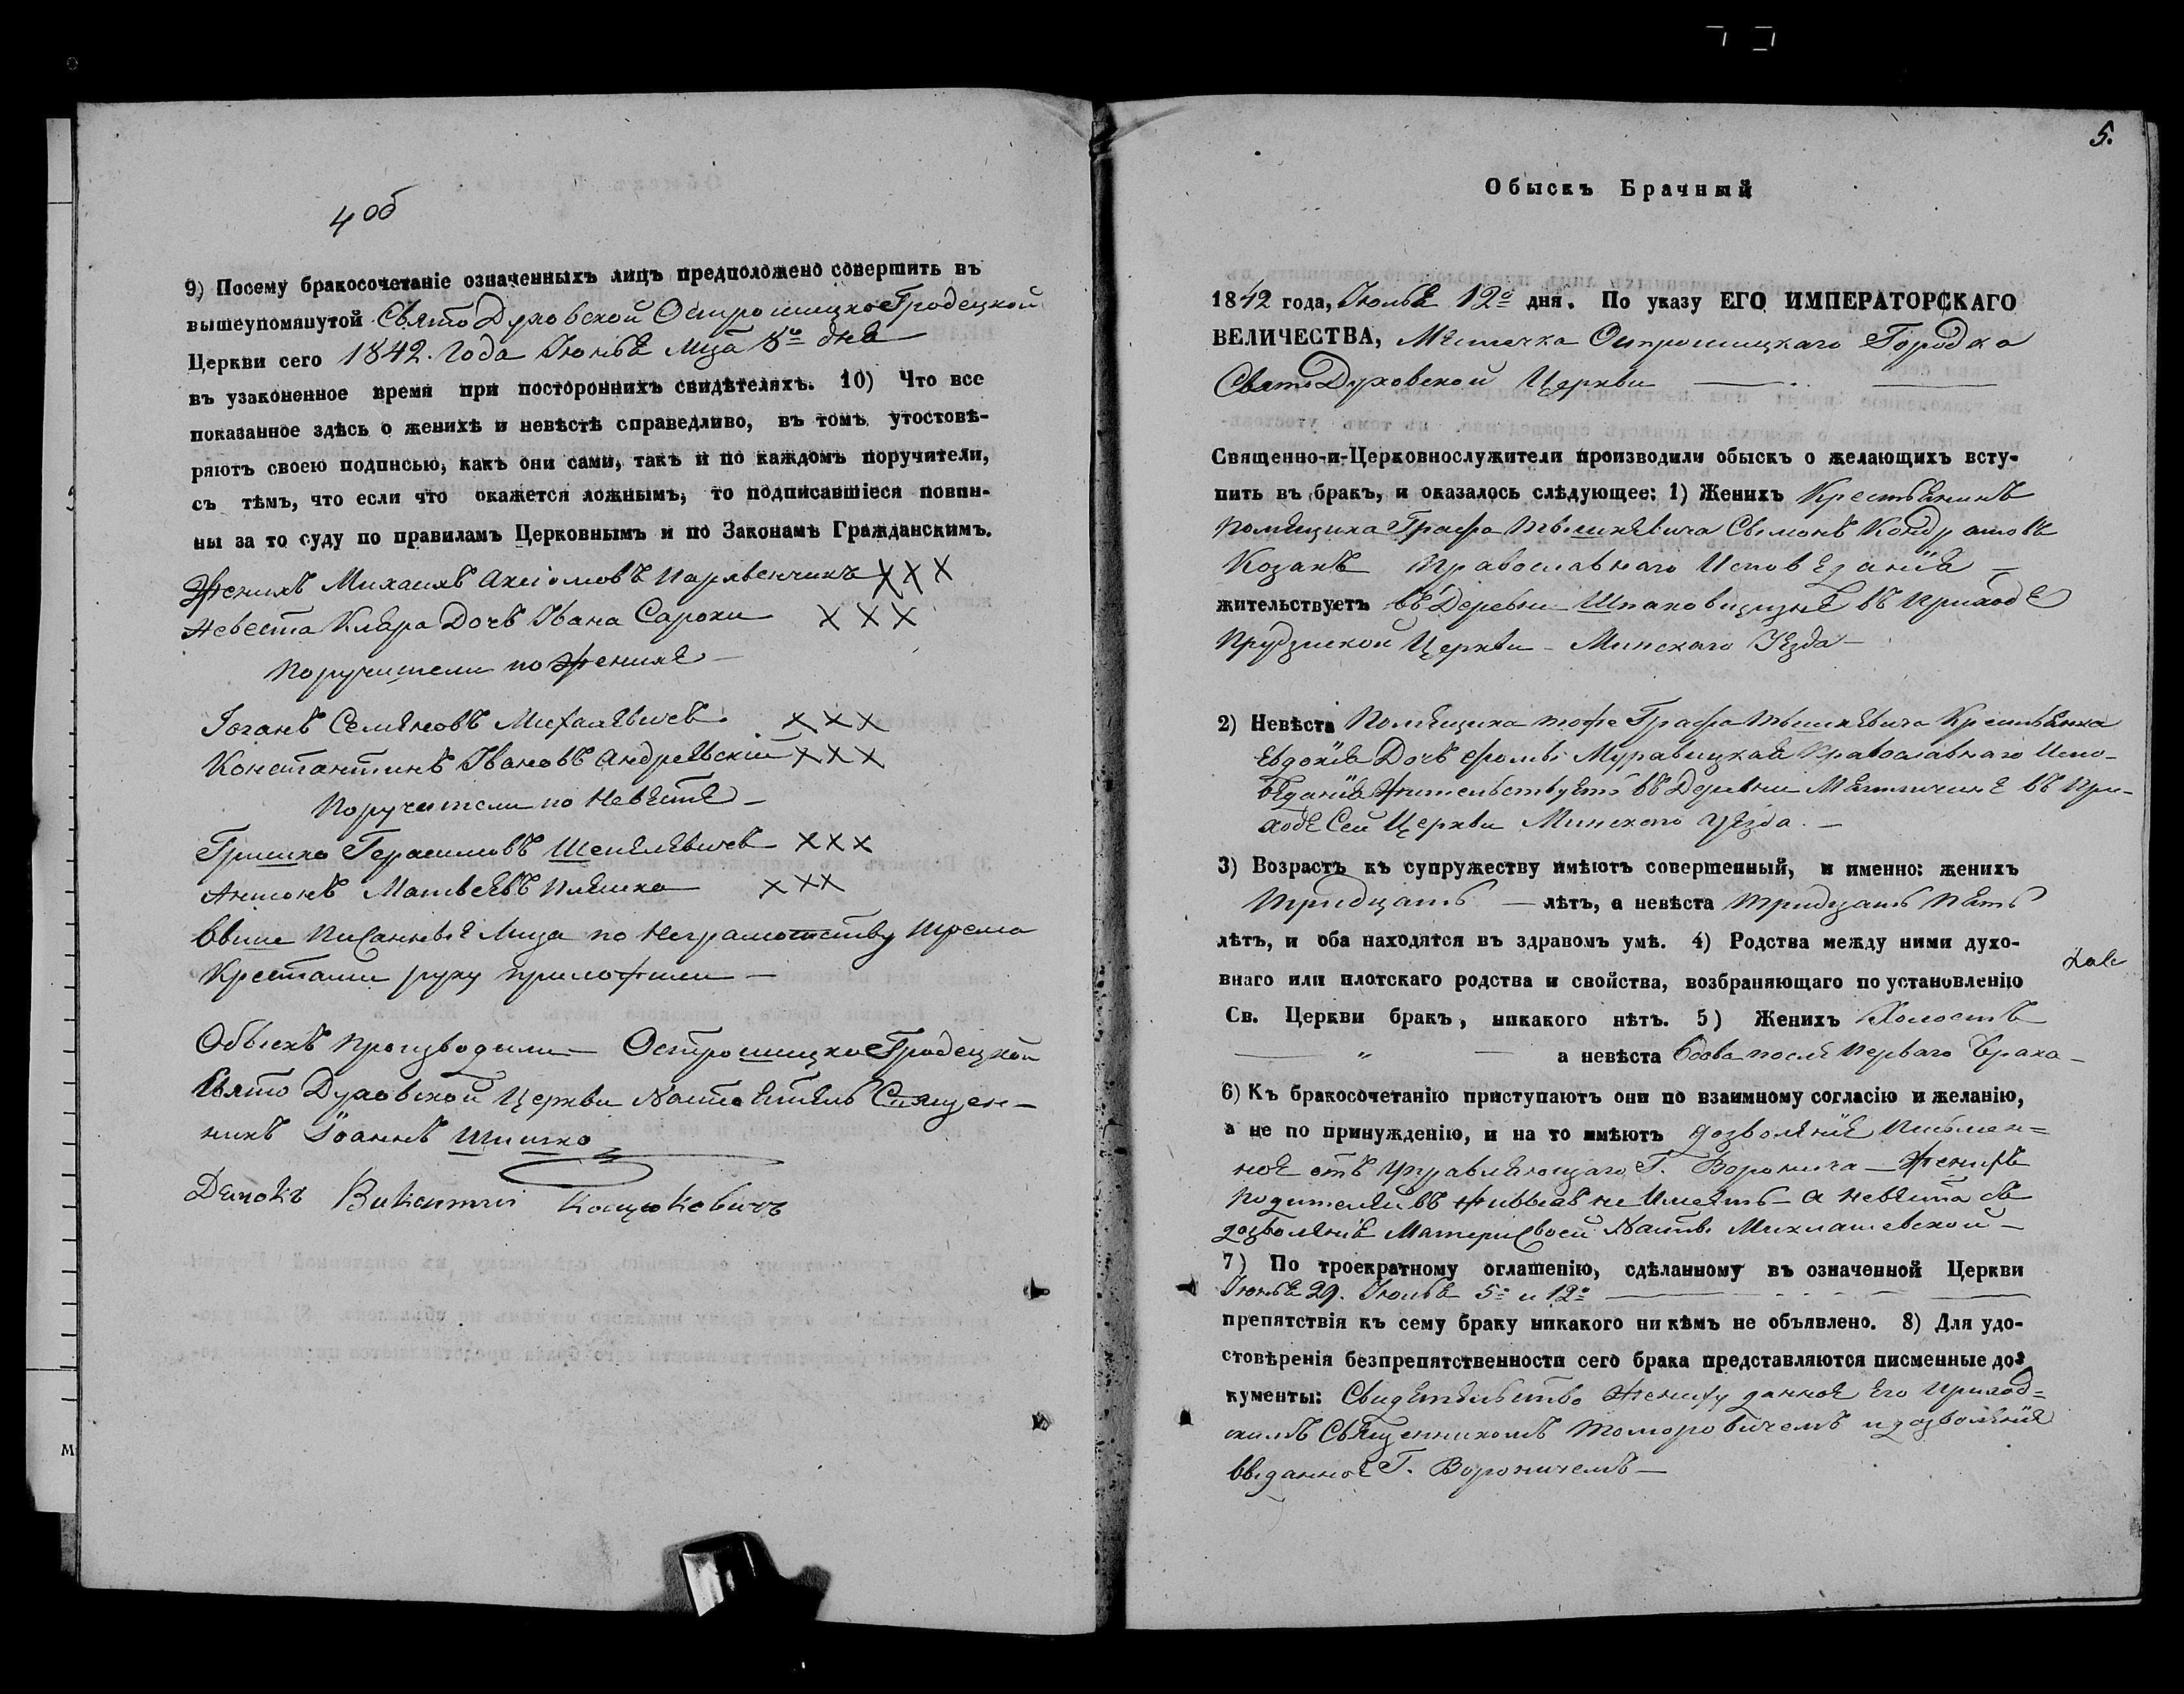 4 об
9) Посему бракосочетаніе означенныхъ лицъ предположено совершить въ
вышеупомянутой Свято Духовской ОстрошицкоГродецкой
Церкви сего 1842. года Іюня Мца 8го дня
въ узаконенное время при постороннихъ свидѣтеляхъ. 10) Что все
показанное здѣсь о женихѣ и невѣстѣ справедливо, въ томъ утостовѣ-
ряютъ своею подписью, какъ они сами, такъ и по каждомъ поручители,
съ тѣмъ, что если что окажется ложнымъ, то подписавшіеся повин-
ны за то суду по правиламъ Церковнымъ и по Законамъ Гражданскимъ.
Женихъ Михаилъ XXX
Невеста Клара Дочь Ивана Сароки XXX
Поручители по женихе
Іоганъ Семяновъ Михалевичъ XXX
Константинъ Ивановъ Андреевскій XXX
Поручители по Невесте
Гришко Герасимовъ Шепелевичъ XXX
Антонъ Матвеевъ Пляшко XXX
Выше Писанные Лица по Неграмотству Трема
Крестами руку приложили
Обыскъ Производили Острошицко Гродецкой
Свято Духовской Церкви Настоятель Священ-
никъ Іоаннъ Шишко
Дьячокъ Викентий Косцюковичъ
5.
Обыскъ Брачный
1842 года, Іюля 12о дня. По указу ЕГО ИМПЕРАТОРСКАГО
ВЕЛИЧЕСТВА, Местечка Острошицкаго Городка
Свято Духовской Церкви
Священно-и-Церковнослужители производили обыскъ о желающихъ всту-
пить въ бракъ, и оказалось слѣдующее: 1) Женихъ Крестьянинъ
Помещика Графа Тышкевича Сымонъ Кондратовъ
Козакъ Православнаго Исповеданія
жительствуетъ въ Деревни Шпаковщизне въ Приходе
Прудзиской Церкви Минскаго Уезда
2) Невѣста Помещика тоже Графа Тышкевича Крестьянка
Евдокія Дочь Фомы Муравицкая Православнаго Испо-
веданія Жительствуетъ въ Деревни въ При-
ходе Сей Церкви Минскаго уезда.
3) Возрастъ къ супружеству имѣютъ совершенный, и именно: женихъ
Тридцать лѣтъ, а невѣста тридцать Пять
лѣтъ, и оба находятся въ здравомъ умѣ. 4) Родства между ними духо-
внаго или плотскаго родства и свойства, возбраняющаго по установленію
Св. Церкви бракъ, никакого нѣтъ. 5) Женихъ Холостъ
„ а невѣста Вдова после Перваго Брака
6) Къ бракосочетанію приступаютъ они по взаимному согласію и желанію,
а не по принужденію, и на то имѣютъ дозволеніе Письмен=
ное отъ Управляющаго Г. Воронича Женихъ
Родителей въ живыхъ не Имеетъ а Невеста съ
дозволенія Матери Своей Насты
7) По троекратному оглашенію, сдѣланному въ означенной Церкви
Іюня 29. Іюля 5о и 12о
препятствія къ сему браку никакого ни кѣмъ не объявлено. 8) Для удо-
стовѣренія безпрепятственности сего брака представляются писменные до-
кументы: Свидетельство Жениху данное Его Приход=
скимъ Священникомъ Томоровичемъ и дозволеніе
выданное Г. Вороничемъ